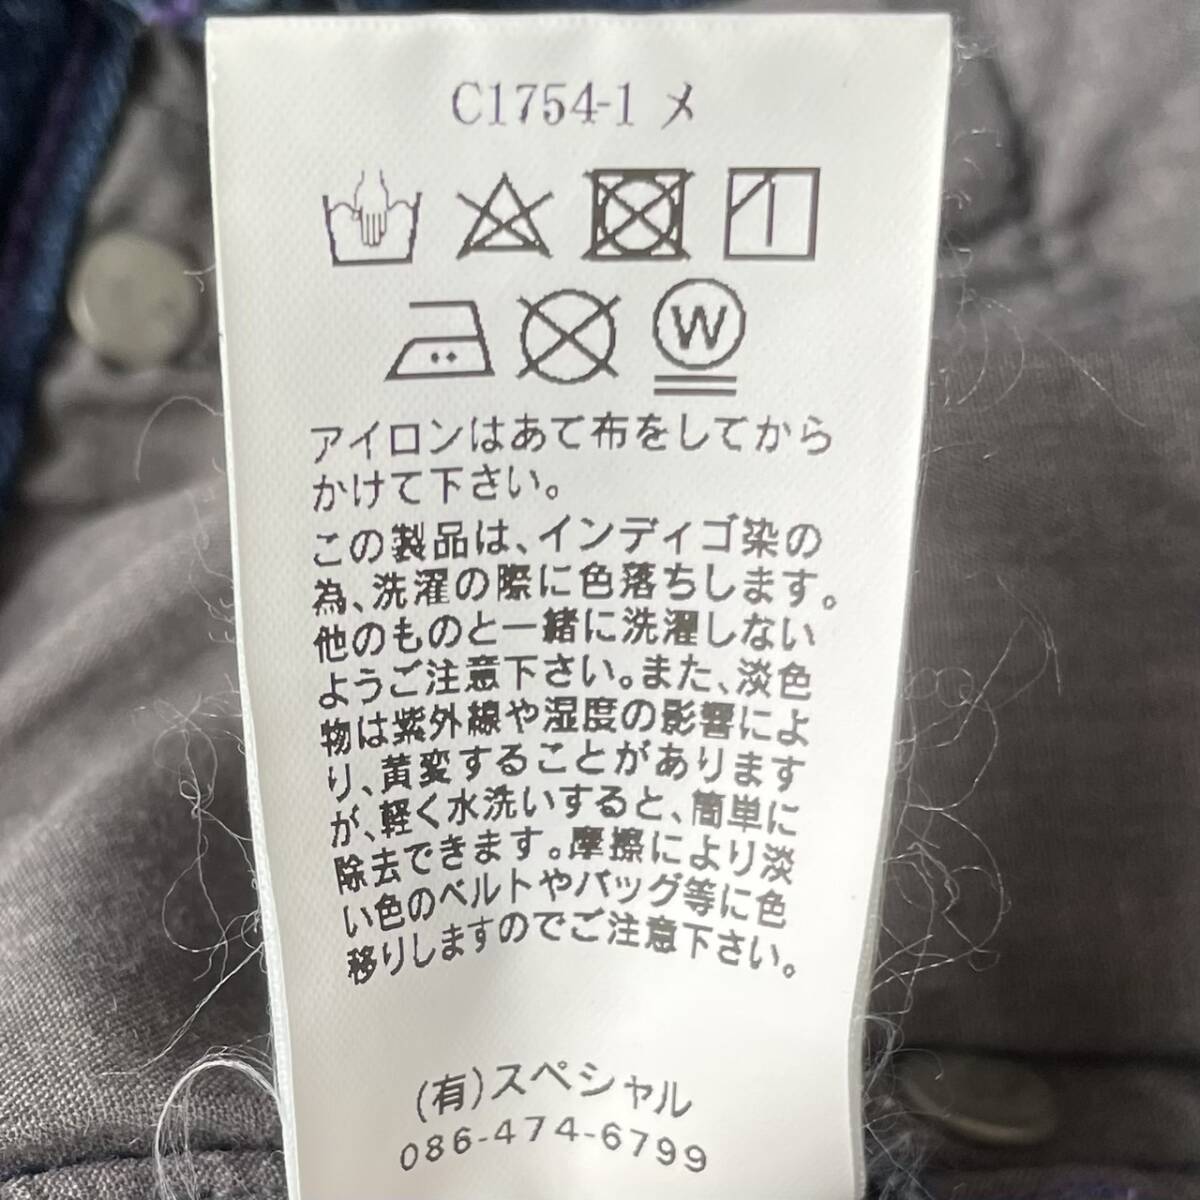 C1754-1 メ
W
アイロンはあて布をしてから
かけて下さい。
この製品は、インディゴ染の
為、洗濯の際に色落ちします。
他のものと一緒に洗濯しない
ようご注意下さい。また、淡色
物は紫外線や湿度の影響によ
り、黄変することがあります
が、軽く水洗いすると、簡単に
除去できます。摩擦により淡
い色のベルトやバッグ等に色
移りしますのでご注意下さい。
(有)スペシャル
086-474-6799